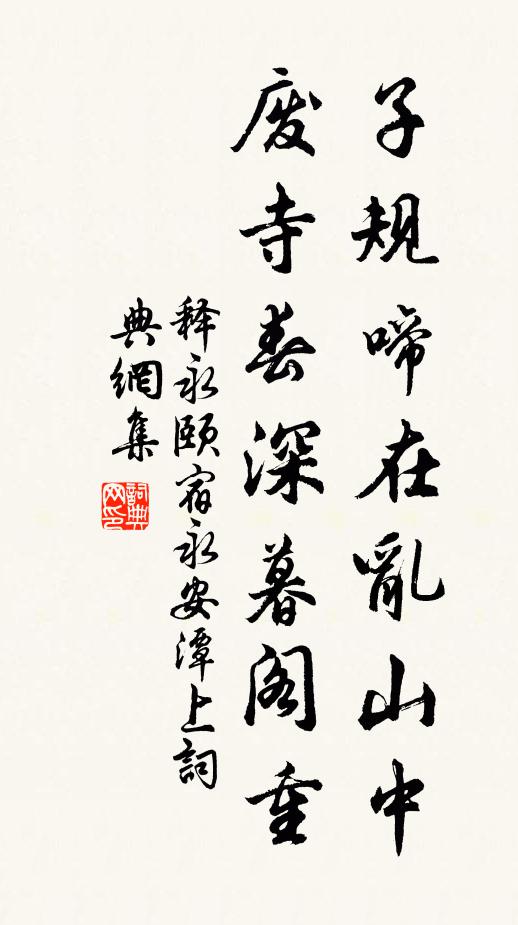 子規啼在亂山中
废寺春深暮阁重
释永颐宿永安潭上詞
典網集
詞典网印